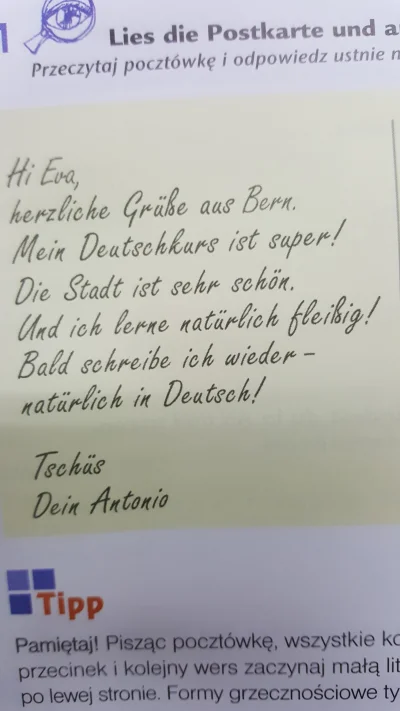 Lies die Postkarte und
Przeczytaj pocztówkę i odpowiedz ustnie
Hi Eva,
herzliche Grüße aus Bern.
Mein Deutschkurs ist super!
Die Stadt ist sehr schön.
Und ich lerne natürlich fleißig!
Bald schreibe ich wieder –
natürlich in Deutsch!
Tschüs
Dein Antonio
Tipp
Pamiętaj! Pisząc pocztówkę, wszystkie
przecinek i kolejny wers zaczynaj małą
po lewej stronie. Formy grzecznościowe